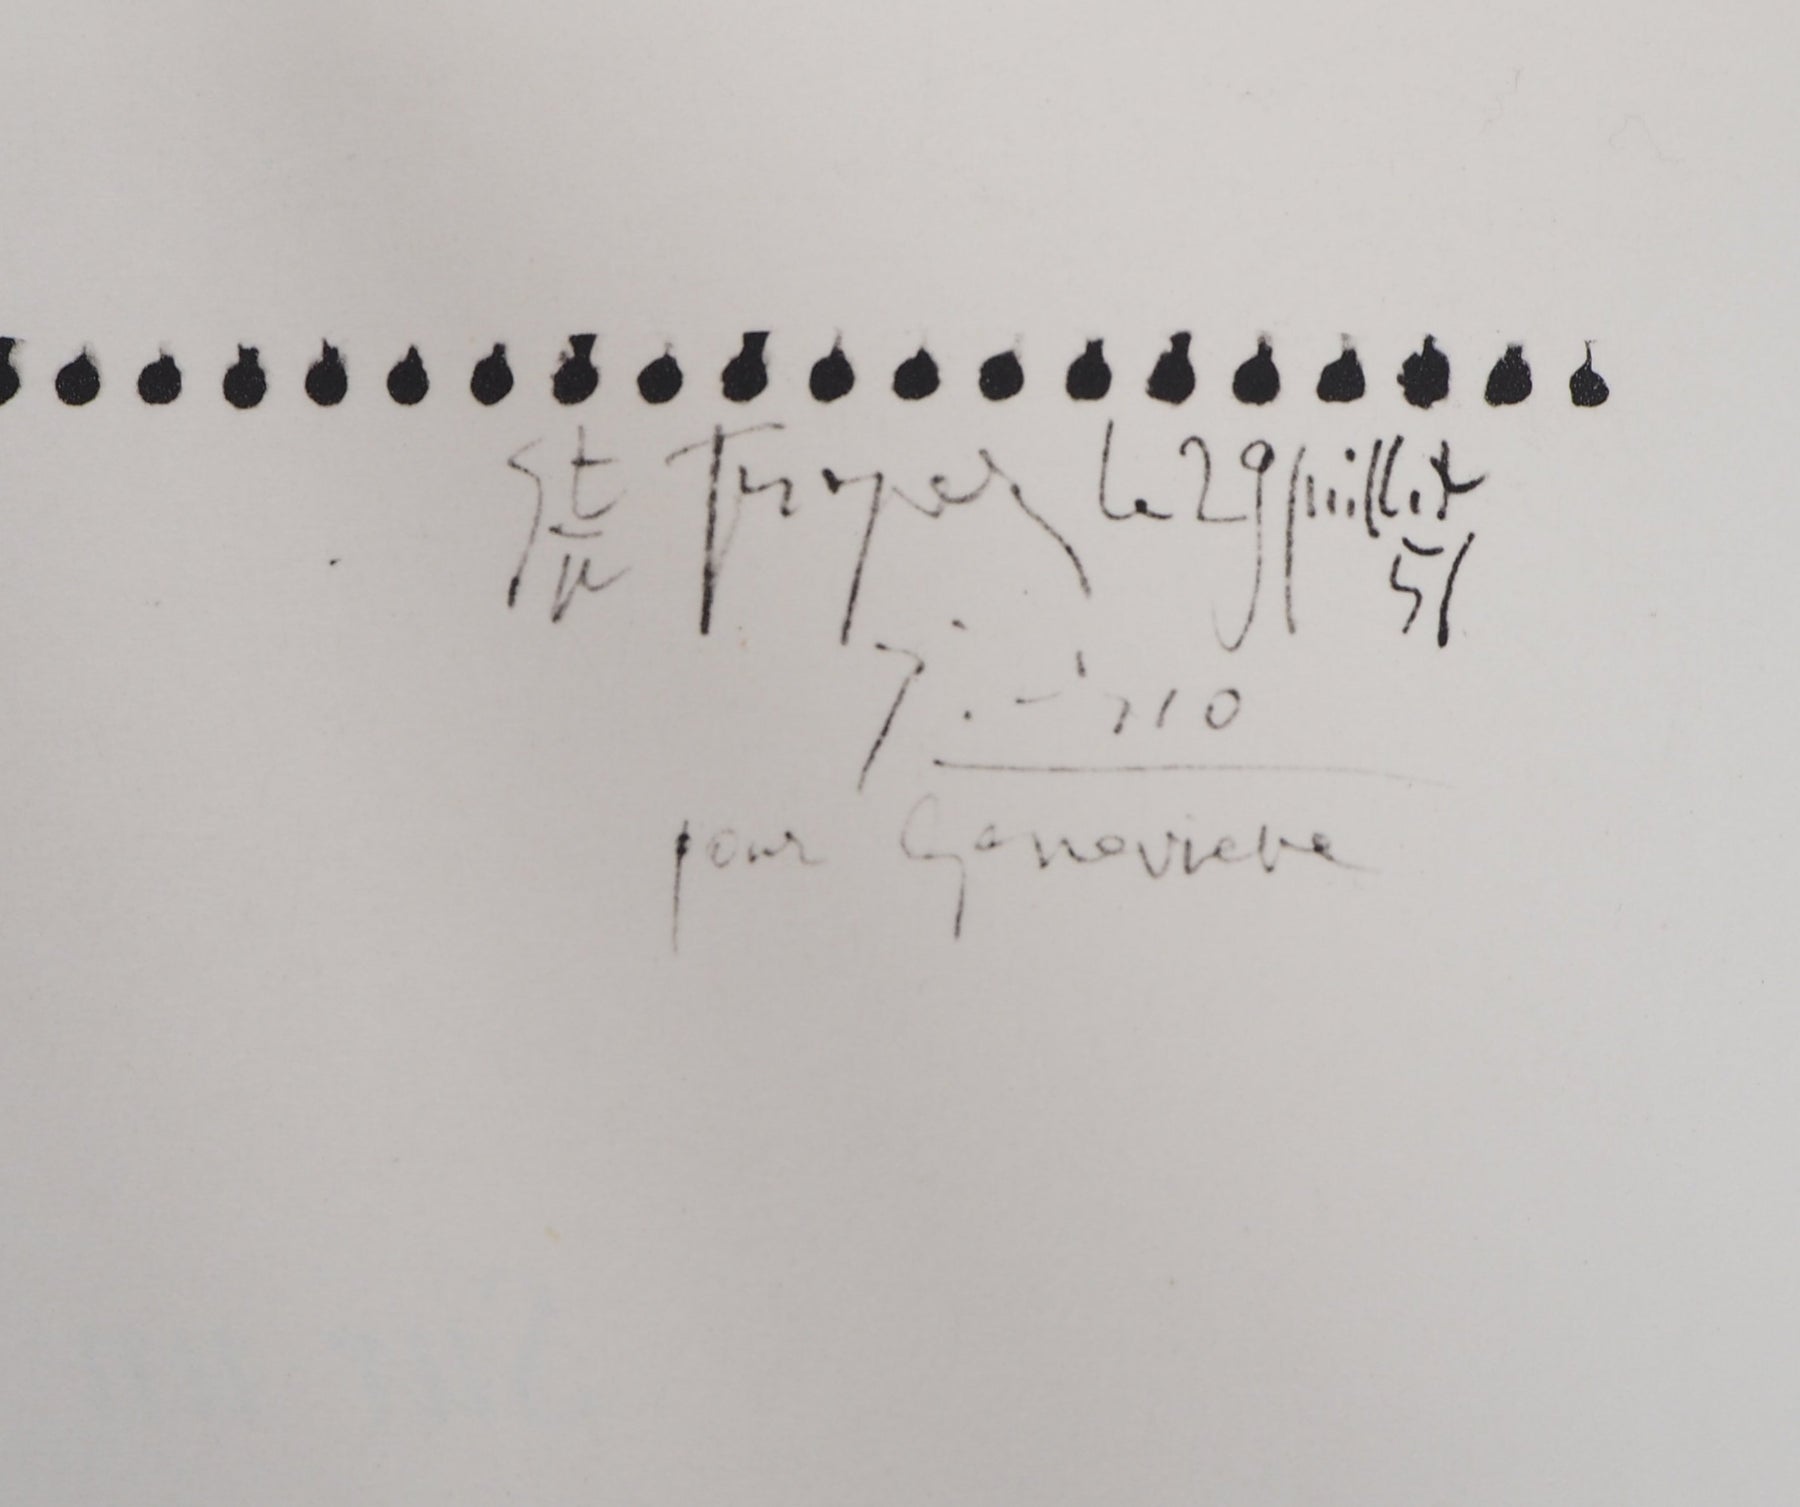 St Tropez le 29 juillet
51
pour Genevieve